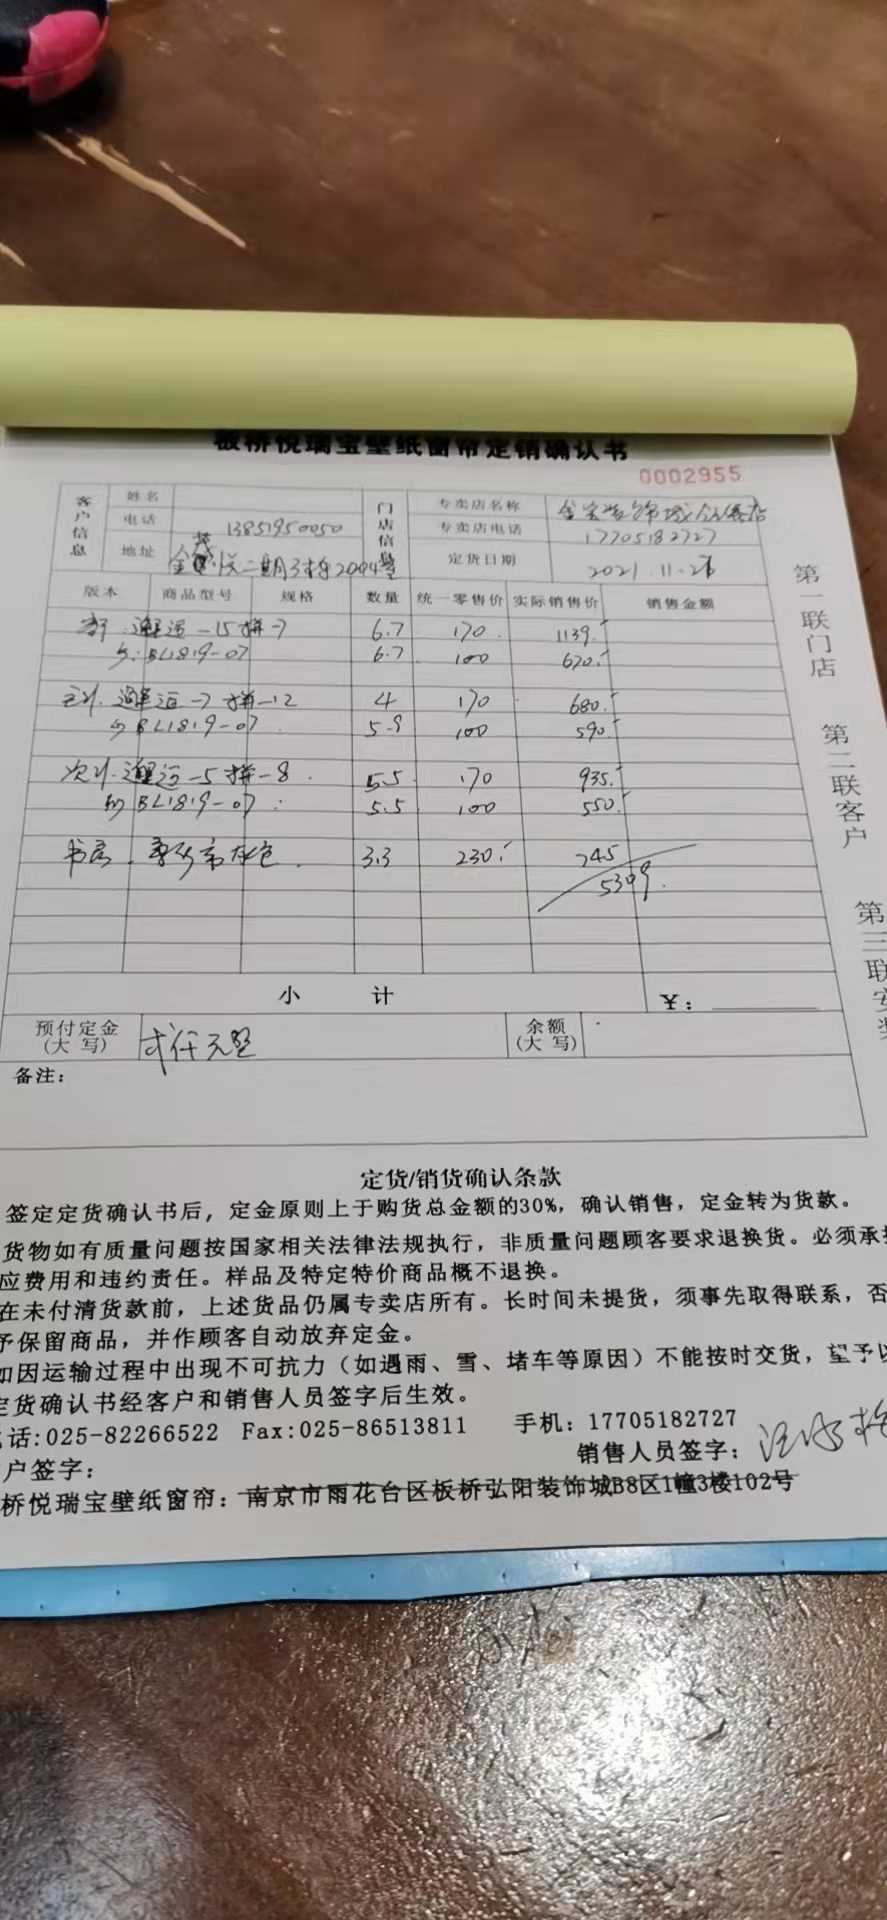 板桥悦瑞宝壁纸窗帘定销确认书
0002955
客户信息 姓名 门店信息 专卖店名称
电话 13851950050 专卖店电话 17705182727
地址 二期3栋2004室 定货日期 2021.11.21
版本 商品型号 规格 数量 统一零售价 实际销售价 销售金额
客厅:邂逅-15拼-7 6.7 170. 1139.
纱:BL1819-07 6.7 100 670.
主卧.邂逅-7拼-12 4 170 680.
纱BL1819-07. 5.9 100 590.
次卧.邂逅-5拼-8. 5.5 170 935.
纱BL1819-07: 5.5 100 550.
书房. 3.3 230. 745
5309.
小 计 ¥:
预付定金(大 写) 贰仟元整 余额(大 写)
备注:
定货/销货确认条款
签定定货确认书后，定金原则上于购货总金额的30%，确认销售，定金转为货款。
货物如有质量问题按国家相关法律法规执行，非质量问题顾客要求退换货。必须承担
应费用和违约责任。样品及特定特价商品概不退换。
在未付清货款前，上述货品仍属专卖店所有。长时间未提货，须事先取得联系，否
予保留商品，并作顾客自动放弃定金。
如因运输过程中出现不可抗力（如遇雨、雪、堵车等原因）不能按时交货，望予以
定货确认书经客户和销售人员签字后生效。
电话:025-82266522 Fax:025-86513811 手机: 17705182727
客户签字: 销售人员签字:
桥悦瑞宝壁纸窗帘: 南京市雨花台区板桥弘阳装饰城B8区1幢3楼102号
第一联门店 第二联客户 第三联安装